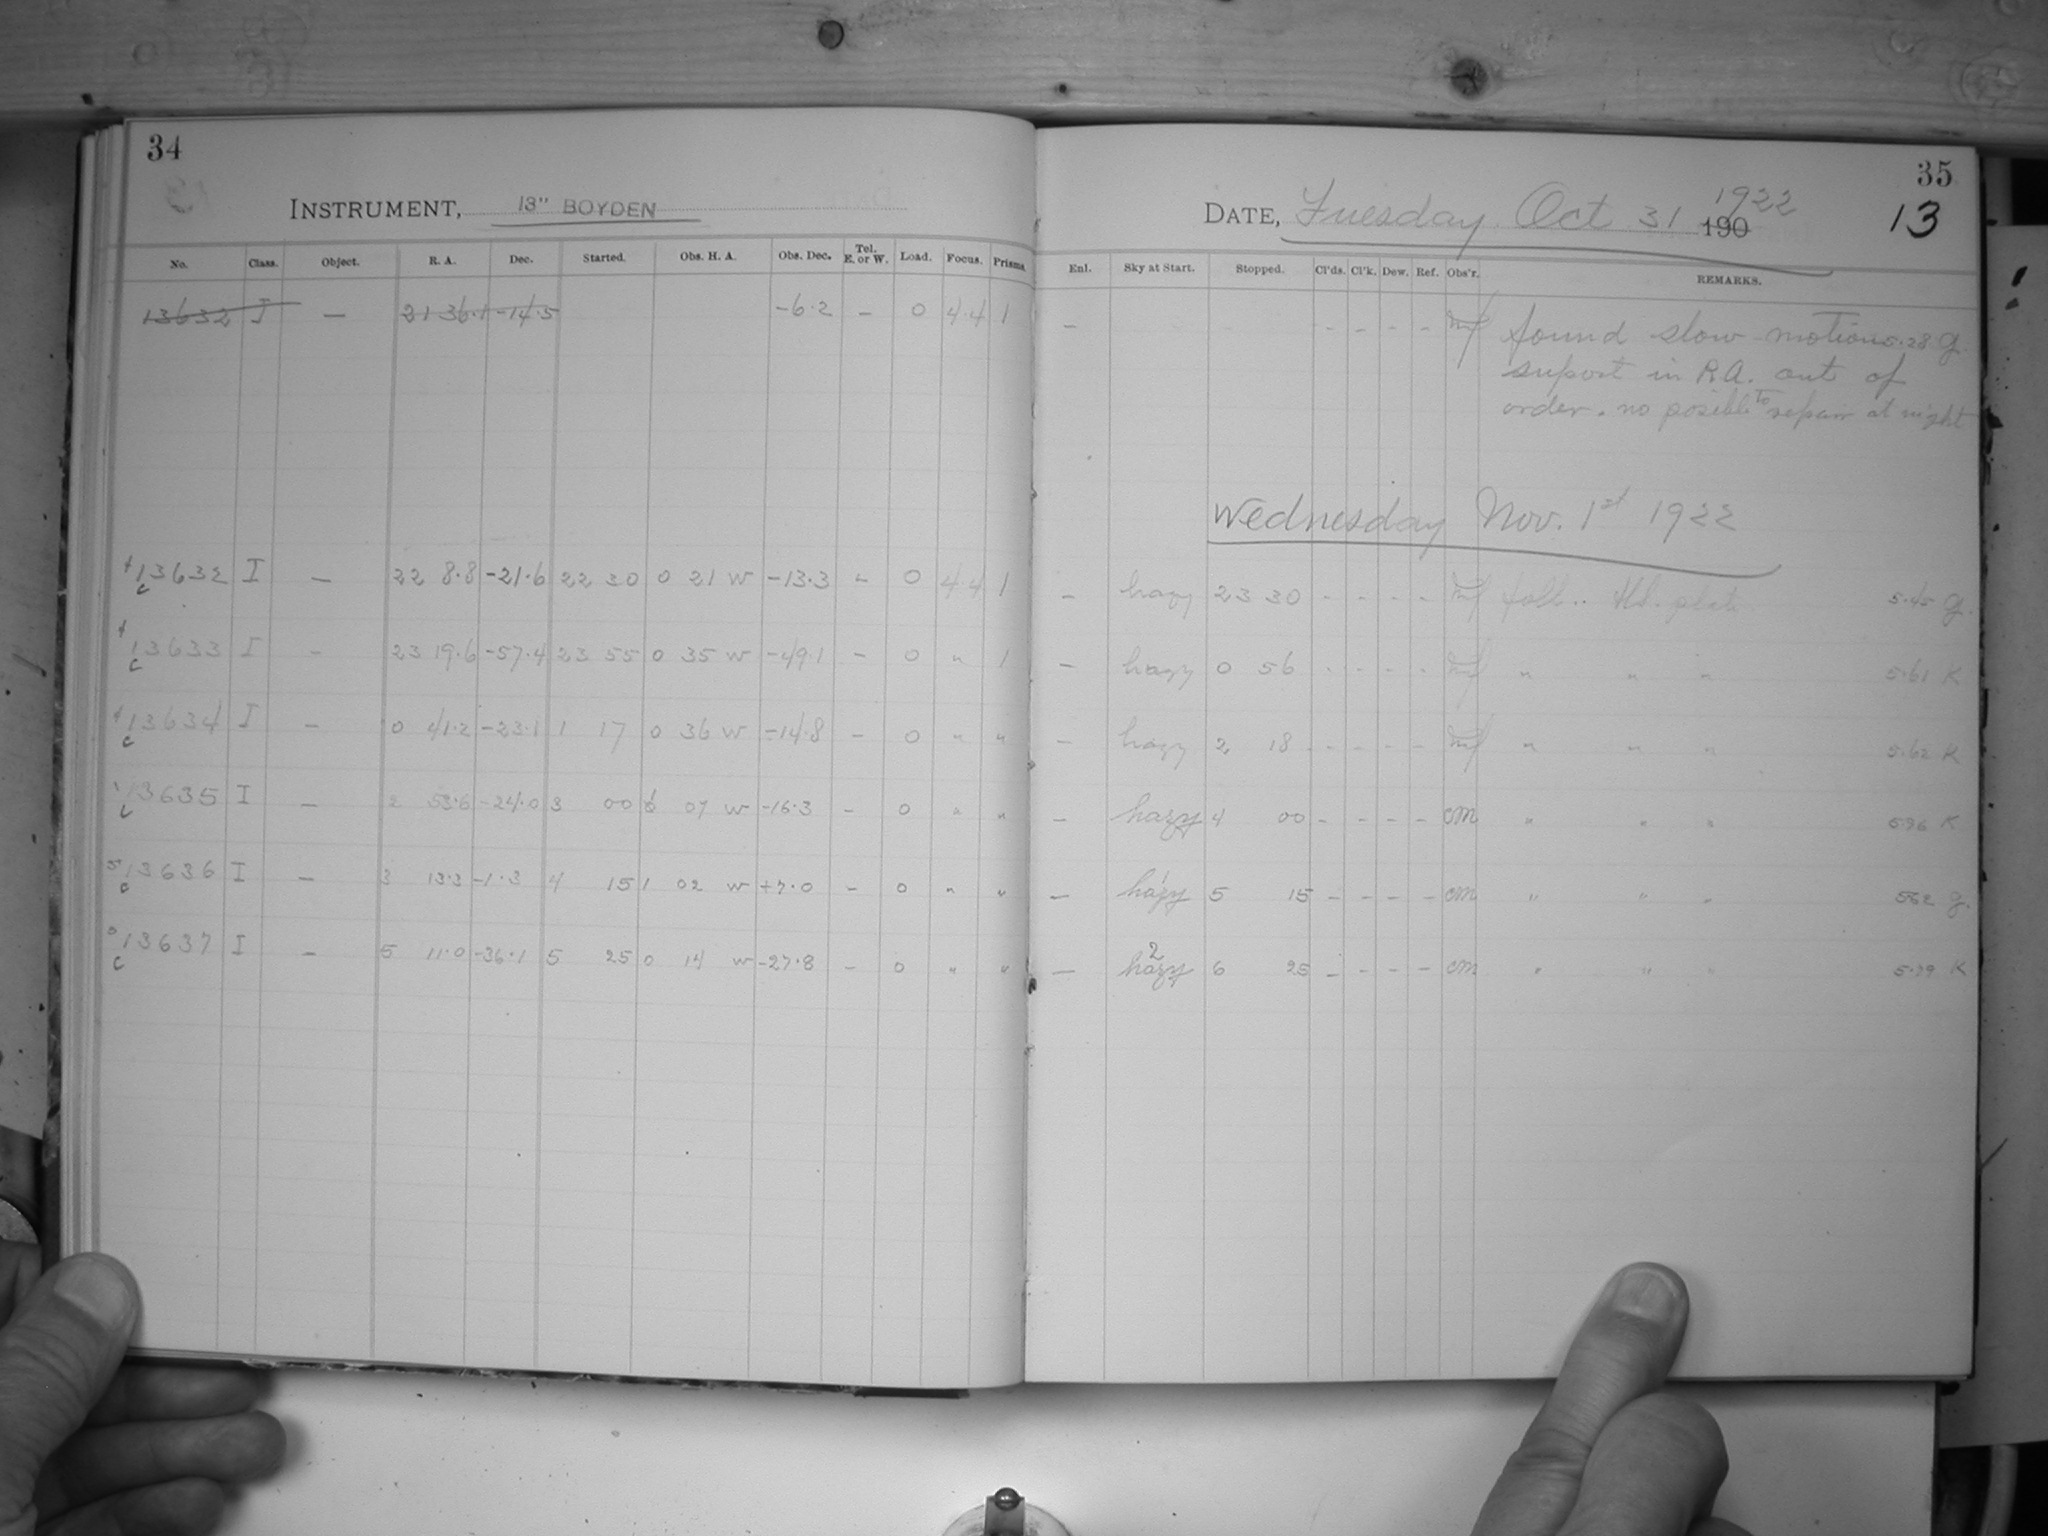 34
INSTRUMENT, 13" BOYDEN
No. Class. Object. R. A. Dec. Started. Obs. H. A. Obs. Dec. Tel. E. or W. Load. Focus. Prisms.
13632 I — 21 36.1 -14.5 -6.2 - 0 4.4 1
13632 I — 22 8.8 -21.6 22 30 0 21 W -13.3 - 0 4.4 1
c
13633 I - 23 19.6 -57.4 23 55 0 35 W -49.1 - 0 " 1
c
13634 I - 0 41.2 -23.1 1 17 0 36 W -14.8 - 0 " "
c
13635 I - 2 53.6 -24.0 3 00 0 07 W -16.3 - 0 " "
c
13636 I - 3 13.3 -1.3 4 15 1 02 W +7.0 - 0 " "
c
13637 I - 5 11.0 -36.1 5 25 0 14 W -27.8 - 0 " "
c
35
DATE, Tuesday Oct 31 1922 190 13
Enl. Sky at Start. Stopped. Cl'ds. Cl'k. Dew. Ref. Obs'r. REMARKS.
- - - - - found slow motion 5.28 g
suport in R.A. out of
order. no posible to repair at night
Wednesday Nov. 1st 1922
- hazy 23 30 - - - - plate 5.45 g.
- hazy 0 56 - - - - " " " 5.61 K
- hazy 2 18 - - - - " " " 5.62 K
- hazy 4 00 - - - - CM " " " K
- hazy 5 15 - - - - CM " " " g.
2
- hazy 6 25 - - - - CM " " " K